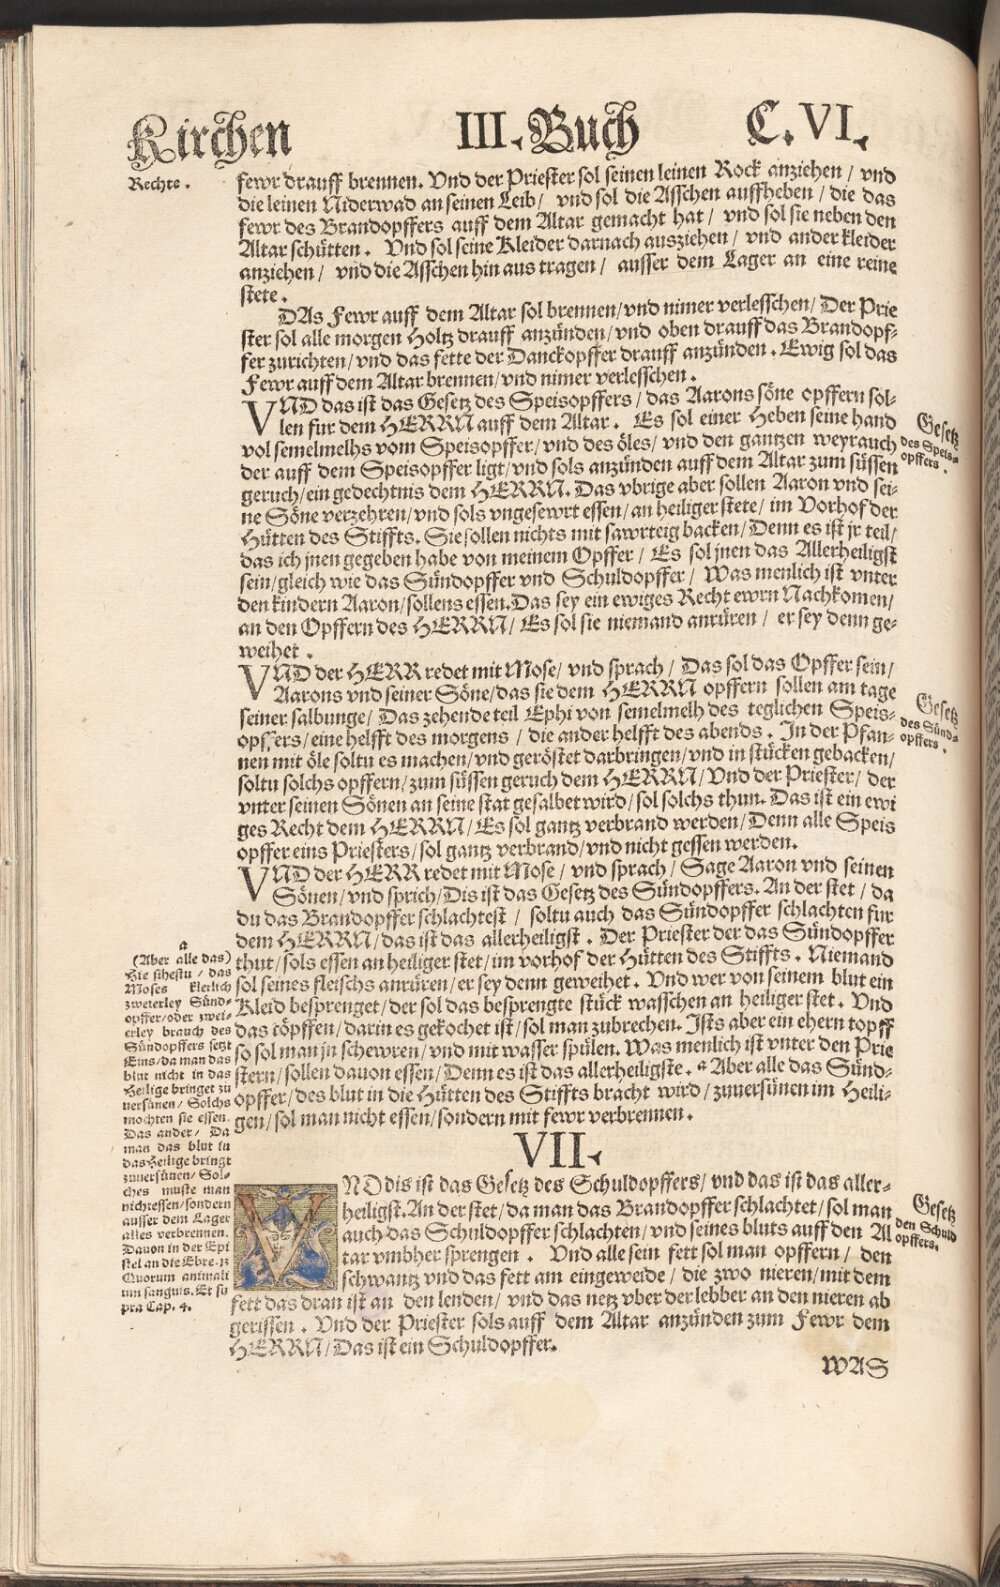 Kirchen III. Buch C. VI.
Rechte.
fewr drauff brennen. Vnd der Priester sol seinen leinen Rock anziehen / vnd
die leinen Niderwad an seinen Leib / vnd sol die Asschen auffheben / die das
fewr des Brandopffers auff dem Altar gemacht hat / vnd sol sie neben den
Altar schütten. Vnd sol seine Kleider darnach ausziehen / vnd ander kleider
anziehen / vnd die Asschen hin aus tragen / ausser dem Lager an eine reine
stete.
DAs Fewr auff dem Altar sol brennen / vnd nimer verlesschen / Der Prie
ster sol alle morgen Holtz drauff anzünden / vnd oben drauff das Brandopf-
fer zurichten / vnd das fette der Danckopffer drauff anzünden. Ewig sol das
Fewr auff dem Altar brennen / vnd nimer verlesschen.
VND das ist das Gesetz des Speisopffers / das Aarons söne opffern sol-
len fur dem HERRN auff dem Altar. Es sol einer Heben seine hand
vol semelmelhs vom Speisopffer / vnd des öles / vnd den gantzen weyrauch
der auff dem Speisopffer ligt / vnd sols anzünden auff dem Altar zum süssen
geruch / ein gedechtnis dem HERRN. Das vbrige aber sollen Aaron vnd sei-
ne Söne verzehren / vnd sols vngesewrt essen / an heiliger stete / im Vorhof der
Hütten des Stiffts. Sie sollen nichts mit sawrteig backen / Denn es ist jr teil /
das ich jnen gegeben habe von meinem Opffer / Es sol jnen das Allerheiligst
sein / gleich wie das Sündopffer vnd Schuldopffer / Was menlich ist vnter
den kindern Aaron / sollens essen. Das sey ein ewiges Recht ewrn Nachkomen /
an den Opffern des HERRN / Es sol sie niemand anrüren / er sey denn ge-
weihet.
Gesetz
des Speis-
opffers.
VND der HERR redet mit Mose / vnd sprach / Das sol das Opffer sein /
Aarons vnd seiner Söne / das sie dem HERRN opffern sollen am tage
seiner salbunge / Das zehende teil Ephi von semelmelh des teglichen Speis-
opffers / eine helfft des morgens / die ander helfft des abends. In der Pfan-
nen mit öle soltu es machen / vnd geröstet darbringen / vnd in stücken gebacken /
soltu solchs opffern / zum süssen geruch dem HERRN / Vnd der Priester / der
vnter seinen Sönen an seine stat gesalbet wird / sol solchs thun. Das ist ein ewi
ges Recht dem HERRN / Es sol gantz verbrand werden / Denn alle Speis
opffer eins Priesters / sol gantz verbrand / vnd nicht gessen werden.
Gesetz
des Sünd-
opffers.
VND der HERR redet mit Mose / vnd sprach / Sage Aaron vnd seinen
Sönen / vnd sprich / Dis ist das Gesetz des Sündopffers. An der stet / da
du das Brandopffer schlachtest / soltu auch das Sündopffer schlachten fur
dem HERRN / das ist das allerheiligst. Der Priester der das Sündopffer
thut / sols essen an heiliger stet / im vorhof der Hütten des Stiffts. Niemand
sol seines fleischs anrüren / er sey denn geweihet. Vnd wer von seinem blut ein
Kleid besprenget / der sol das besprengte stück wasschen an heiliger stet. Vnd
das töpffen / darin es gekochet ist / sol man zubrechen. Ists aber ein ehern topff
so sol man jn schewren / vnd mit wasser spülen. Was menlich ist vnter den Prie
stern / sollen dauon essen / Denn es ist das allerheiligste. a Aber alle das Sünd-
opffer / des blut in die Hütten des Stiffts bracht wird / zuuersünen im Heili-
gen / sol man nicht essen / sondern mit fewr verbrennen.
a
(Aber alle das)
Hie sihestu / das
Moses kleilich
zweierley Sünd-
opffer / oder zwei-
erley brauch des
Sündopffers setzt
Eins / da man das
blut nicht in das
Heilige bringet zu
uersünen / Solchs
mochten sie essen.
Das ander / Da
man das blut in
das Heilige bringt
zuuersünen / Sol-
ches muste man
nicht essen / sondern
ausser dem Lager
alles verbrennen.
Dauon in der Epi
stel an die Ebre. 13
Quorum animali
um sanguis. Et su
pra Cap. 4.
VII.
VND dis ist das Gesetz des Schuldopffers / vnd das ist das aller-
heiligst. An der stet / da man das Brandopffer schlachtet / sol man
auch das Schuldopffer schlachten / vnd seines bluts auff den Al
tar vmbher sprengen. Vnd alle sein fett sol man opffern / den
schwantz vnd das fett am eingeweide / die zwo nieren / mit dem
fett das dran ist an den lenden / vnd das netz vber der lebber an den nieren ab
gerissen. Vnd der Priester sols auff dem Altar anzünden zum Fewr dem
HERRN / Das ist ein Schuldopffer.
Gesetz
den Schuld
opffers.
WAS